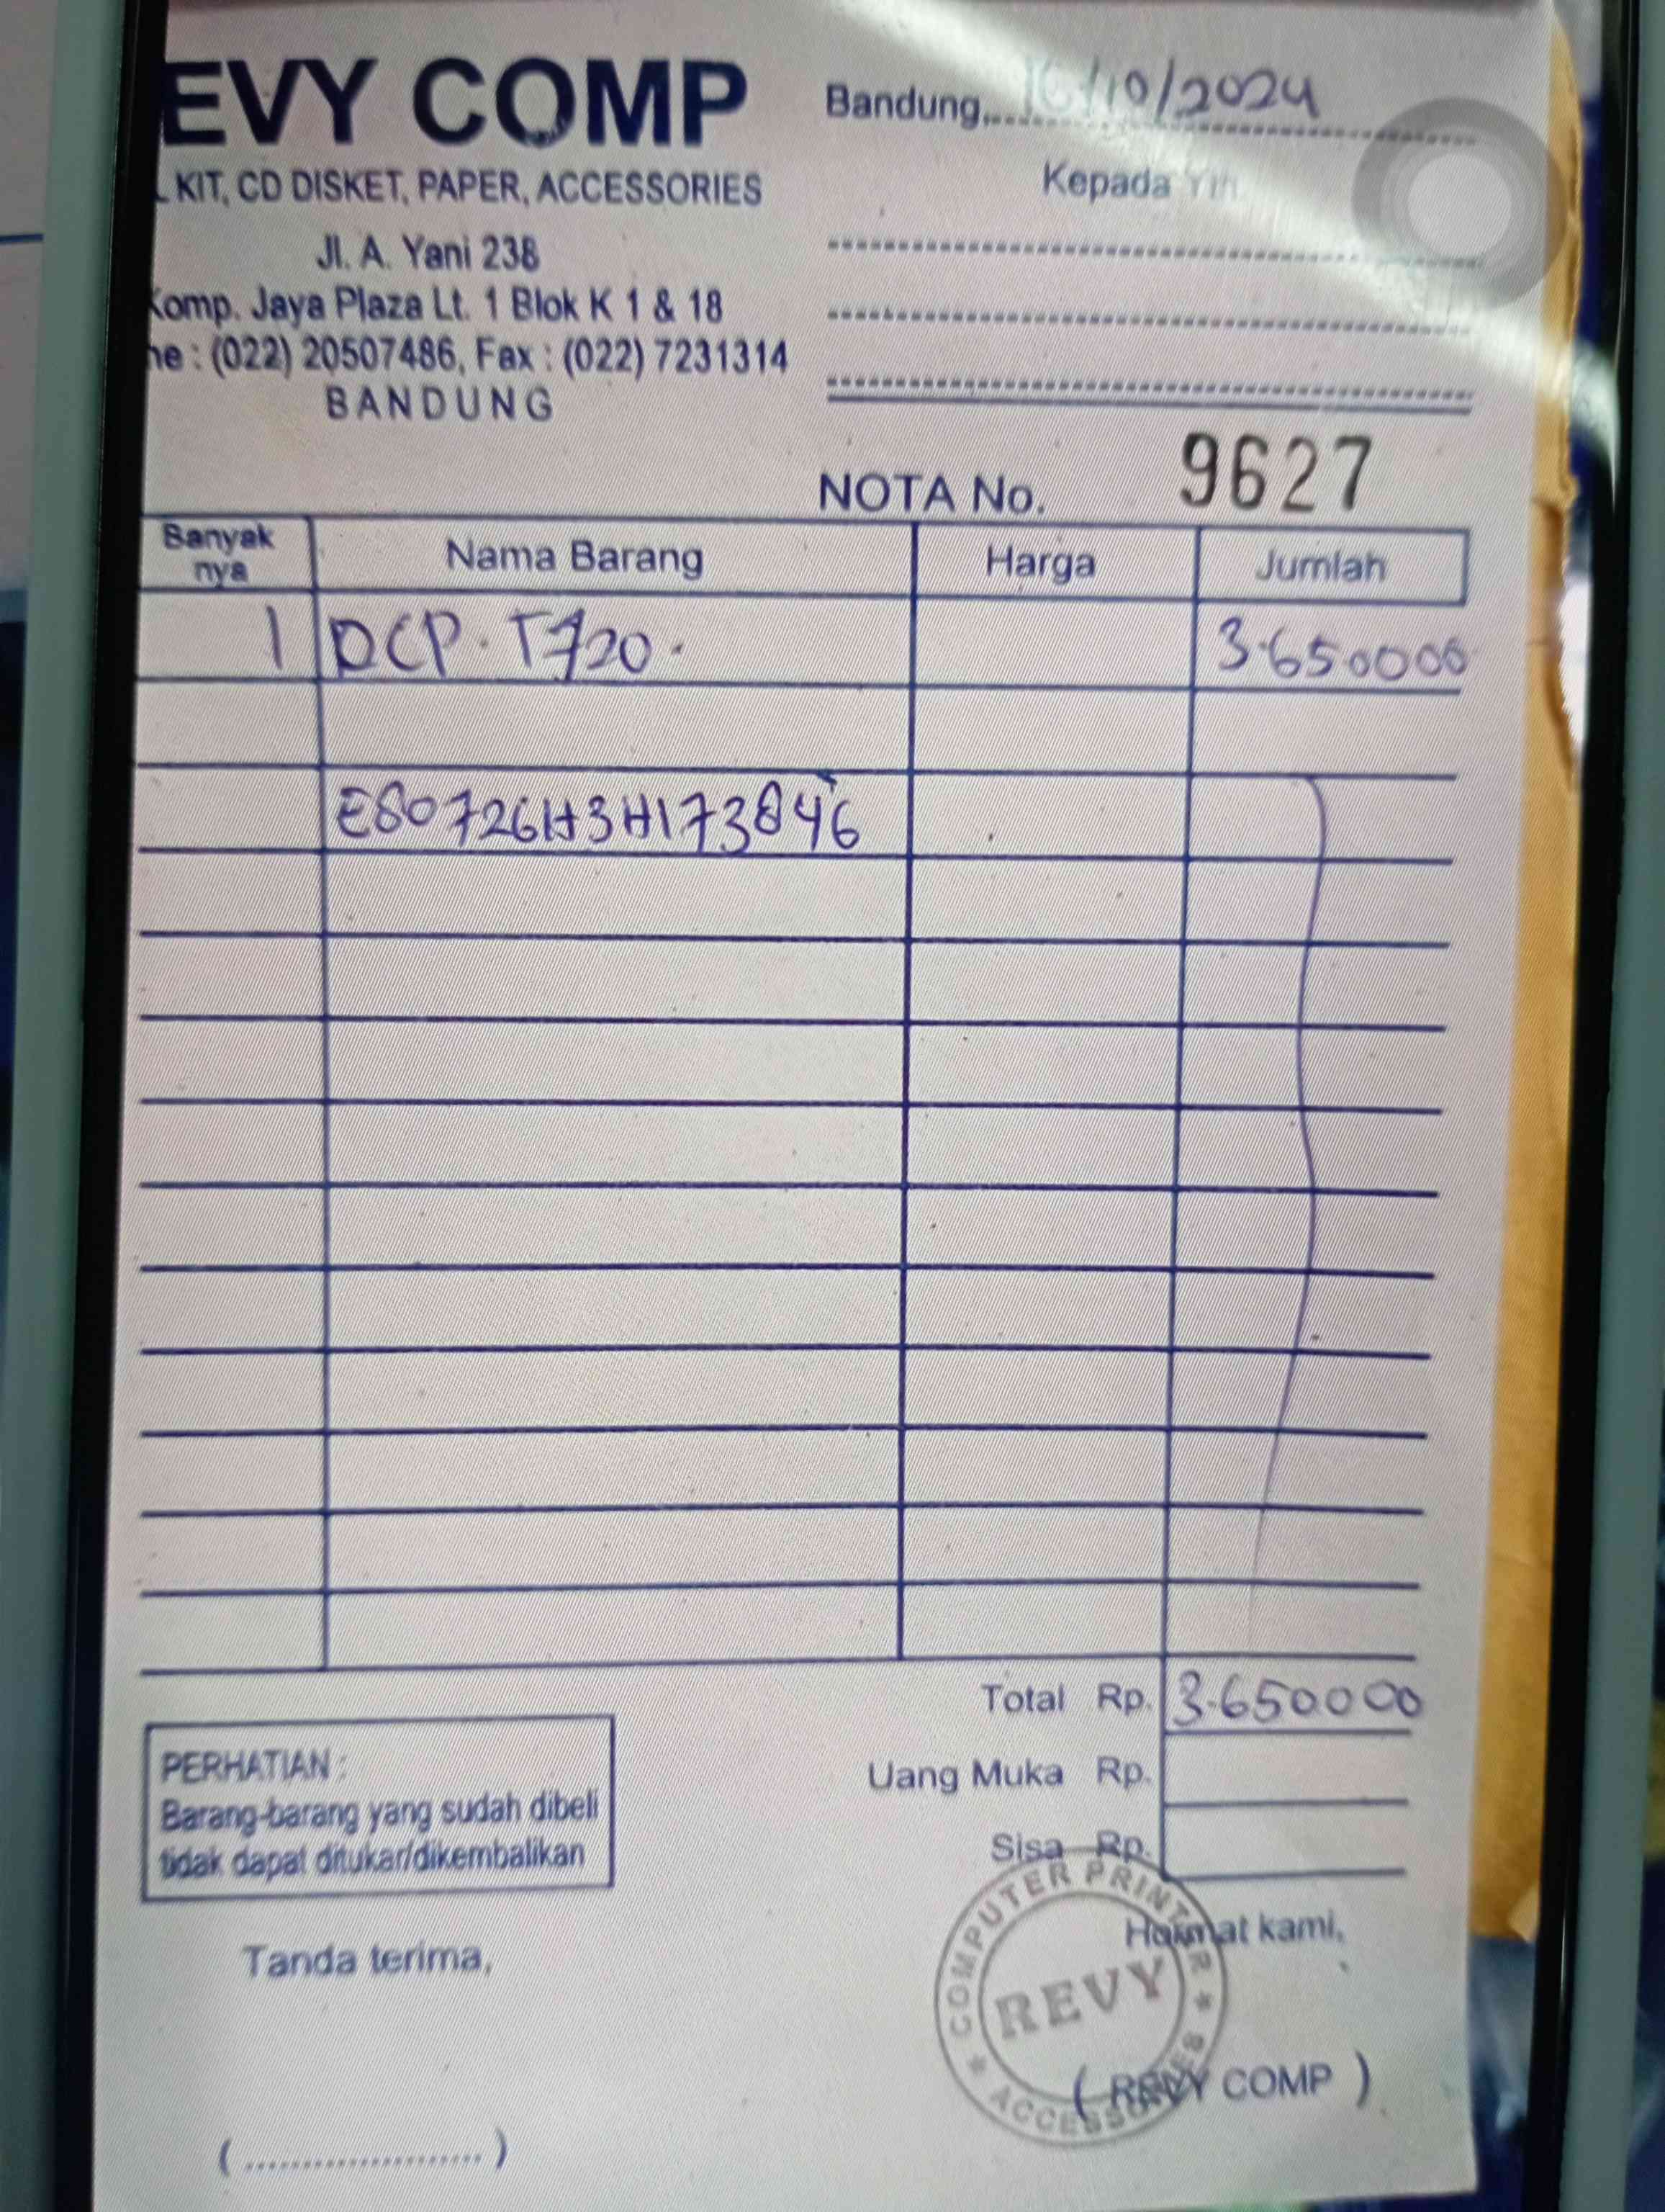 EVY COMP
KIT, CD DISKET, PAPER, ACCESSORIES
Jl. A. Yani 238
Komp. Jaya Plaza Lt. 1 Blok K 1 & 18
ne : (022) 20507486, Fax : (022) 7231314
BANDUNG
Bandung, 16/10/2024
Kepada Yth
NOTA No. 9627
Banyak nya Nama Barang Harga Jumlah
1 DCP. T720. 3.650000
E80726H3H173846
Total Rp. 3.650000
Uang Muka Rp.
Sisa Rp.
PERHATIAN :
Barang-barang yang sudah dibeli
tidak dapat ditukar/dikembalikan
Tanda terima,
Hormat kami,
COMPUTER PRINTER
REVY
ACCESSORIES
( REVY COMP )
(.....................)